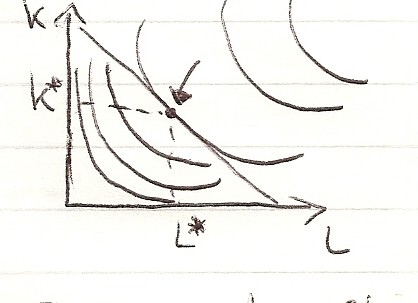 K
K*
L*
L